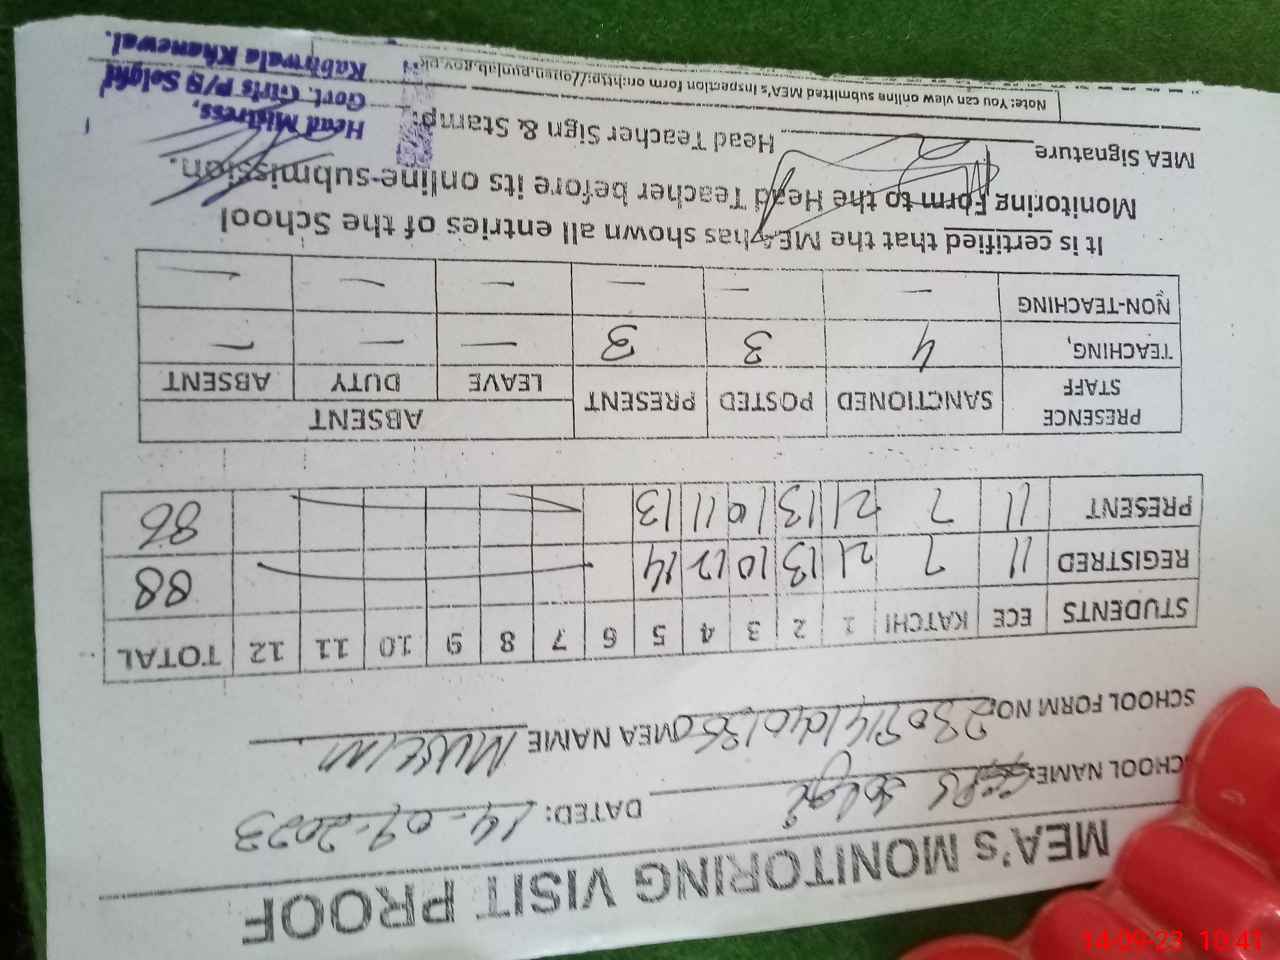 MEA's MONITORING VISIT PROOF
SCHOOL NAME: GGPS Solgi DATED: 14-09-2023
SCHOOL FORM NO. MEA NAME
STUDENTS ECE KATCHI 1 2 3 4 5 6 7 8 9 10 11 12 TOTAL
REGISTRED 11 7 21 13 10 12 14 88
PRESENT 11 7 21 13 10 11 13 86
PRESENCE STAFF SANCTIONED POSTED PRESENT ABSENT
LEAVE DUTY ABSENT
TEACHING, 4 3 3 — — —
NON-TEACHING — — — — — —
It is certified that the MEA has shown all entries of the School
Monitoring Form to the Head Teacher before its online submission.
MEA Signature Head Teacher Sign & Stamp:
Head Mistress,
Govt. Girls P/S Solgi
Kabirwala Khanewal.
Note: You can view online submitted MEA's inspection form on:http://open.punjab.gov.pk
14-09-23 10:41